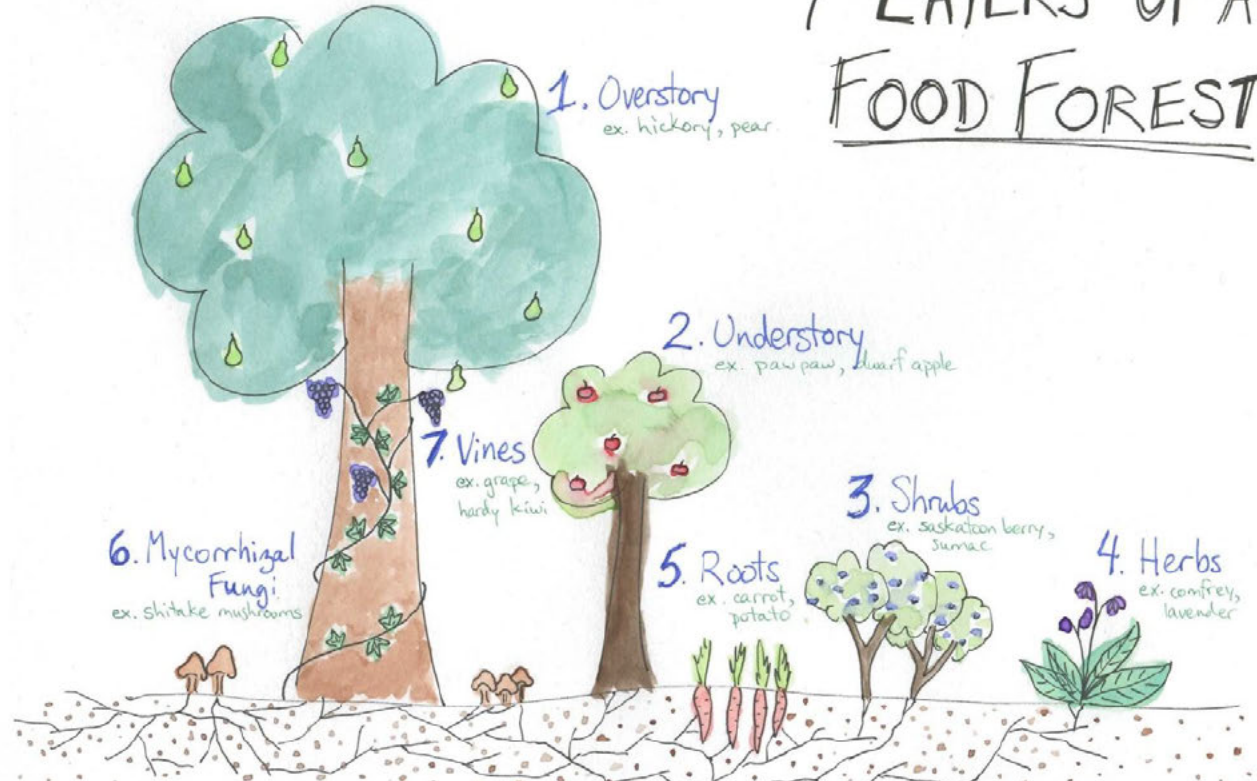 7 LAYERS OF A
FOOD FOREST
1. Overstory
ex. hickory, pear
2. Understory
ex. pawpaw, dwarf apple
7. Vines
ex. grape,
hardy kiwi
3. Shrubs
ex. saskatoon berry,
sumac
6. Mycorrhizal
Fungi
ex. shitake mushrooms
5. Roots
ex. carrot,
potato
4. Herbs
ex. comfrey,
lavender